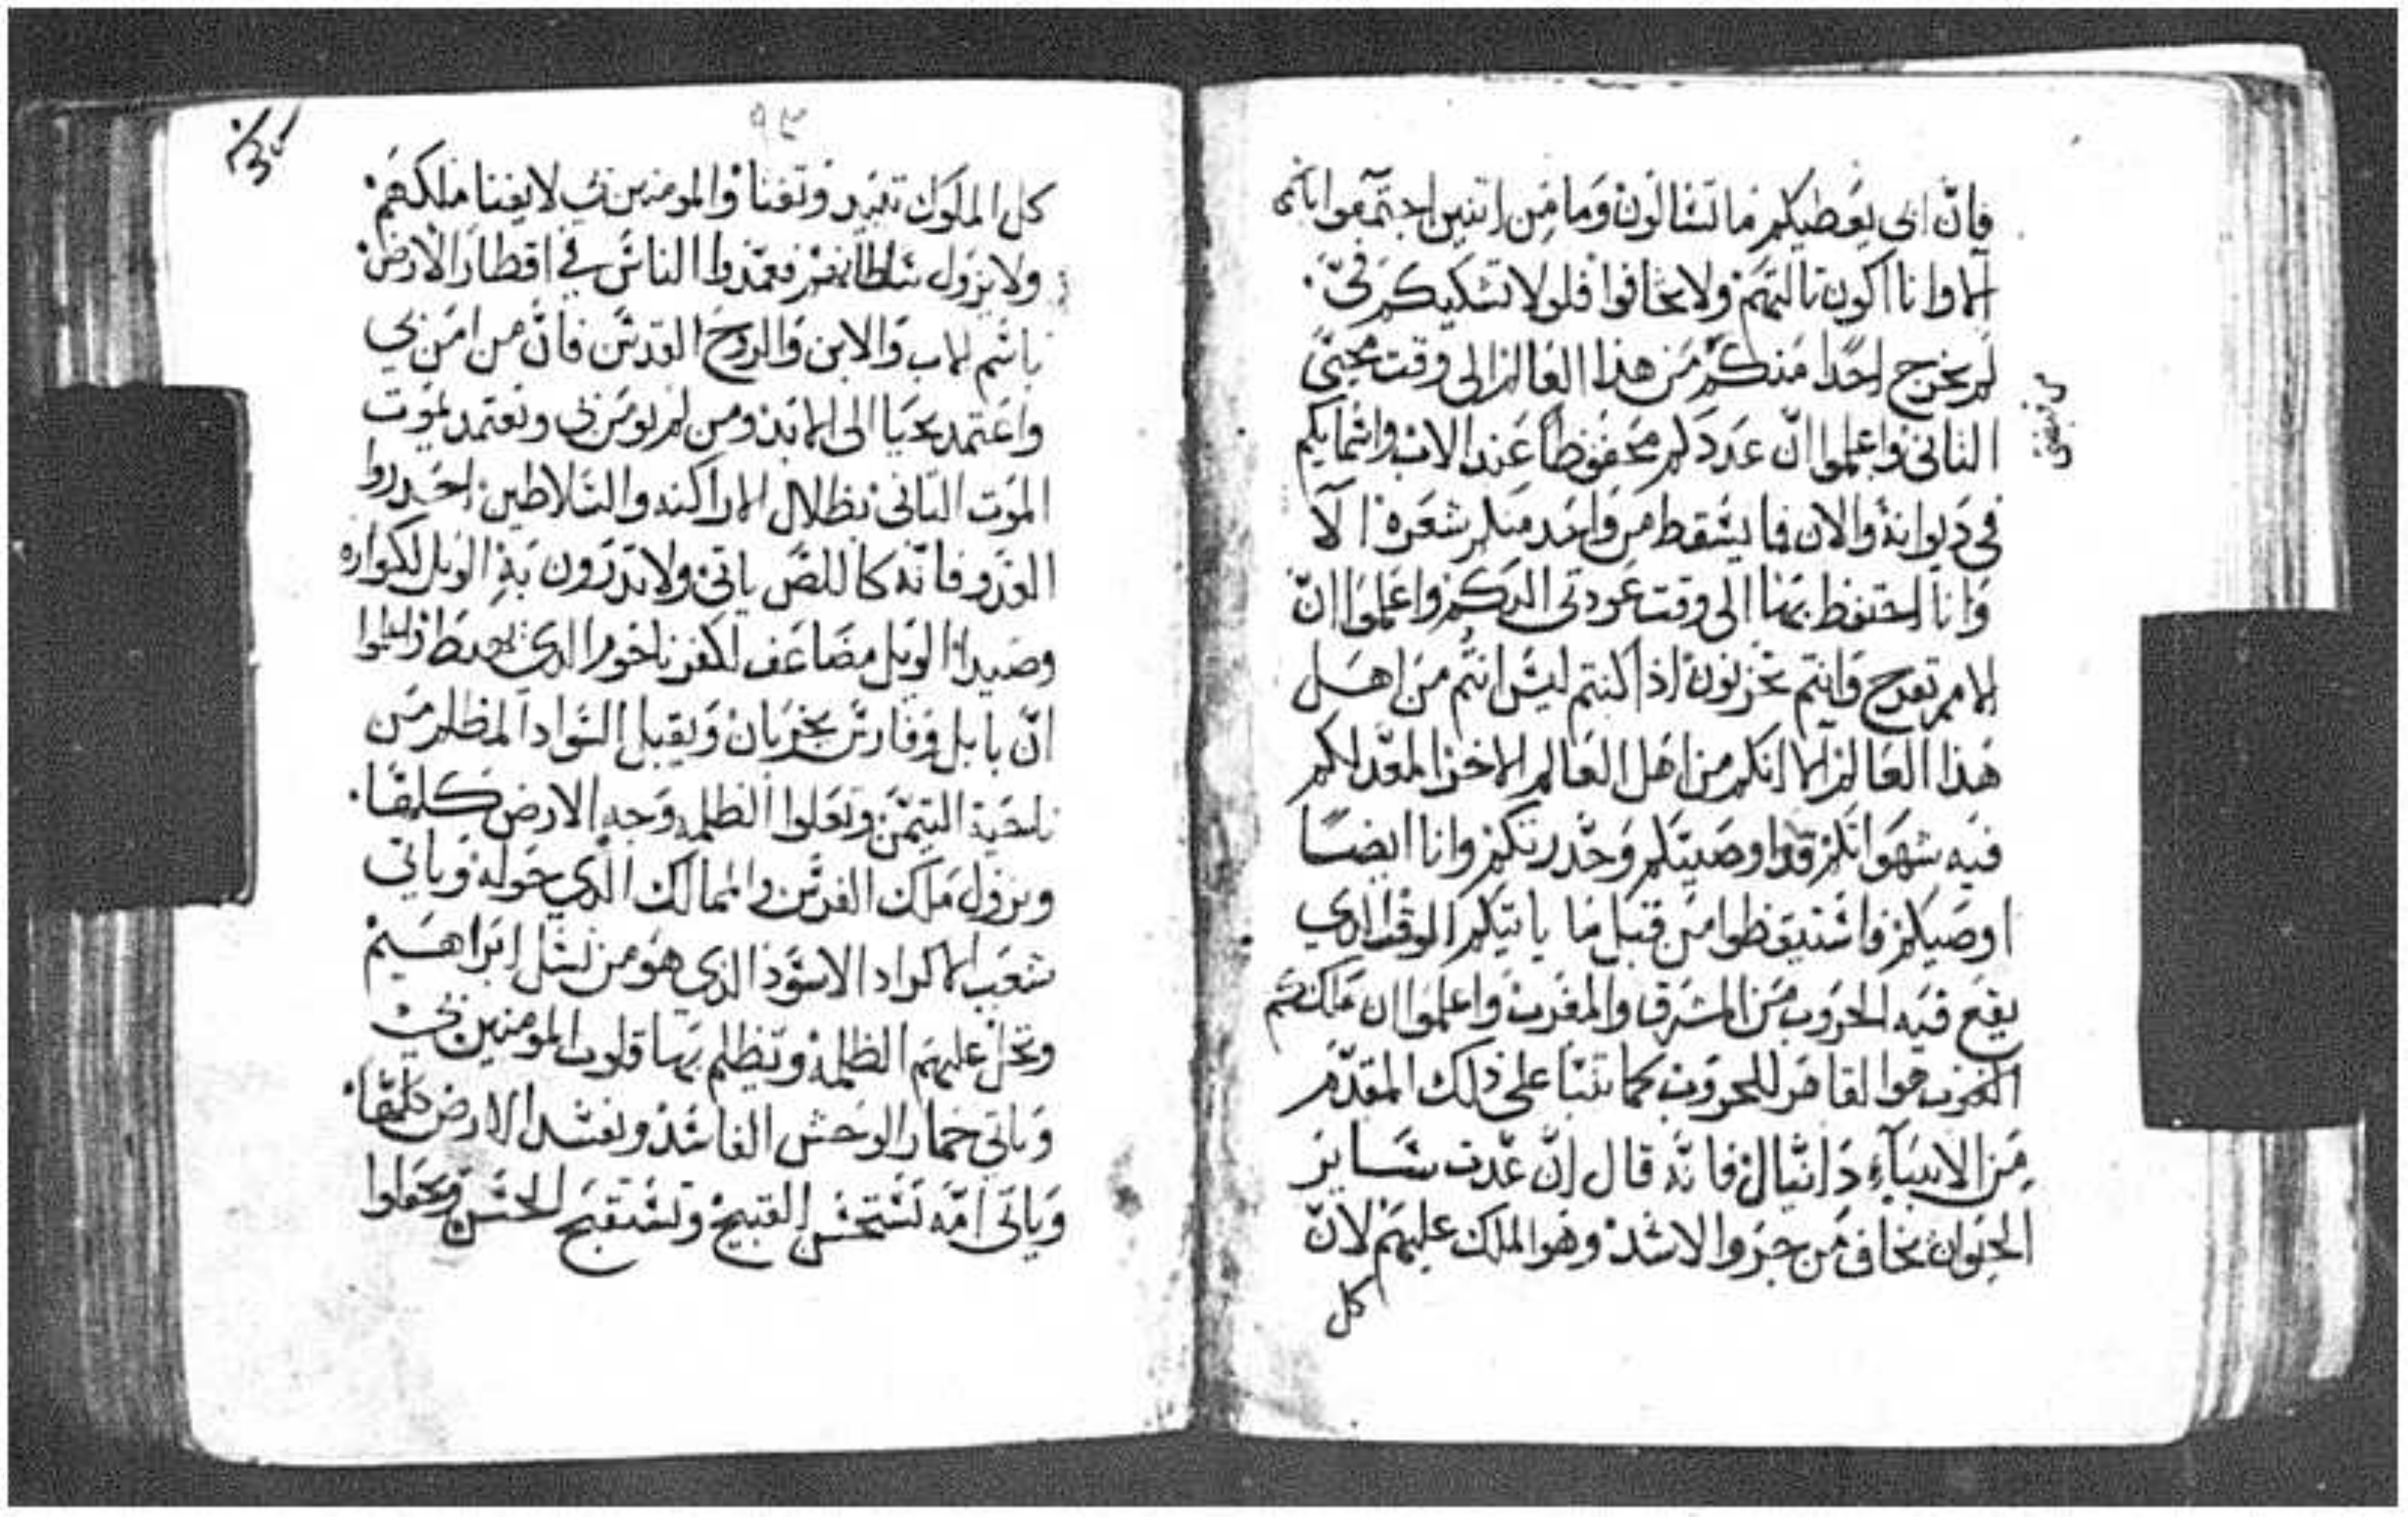 فان ابي يعطيكم ما تسالون وما من اثنين اجتمعوا باسمي
الا وانا اكون ثالثهم ولا تخافوا فلولا تشكيكم فيّ
لم يخرج احدا منكم من هذا العالم الى وقت مجيي
الثاني واعلموا انّ عددكم محفوظا عند الاب واسمايكم
في ديوانه والان فما يسقط من واحد منكم شعره الا
وانا احتفظ بها الى وقت عودتي اليكم واعلموا انّ
الامم تفرح وانتم تحزنون اذا كنتم ليس انتم من اهل
هذا العالم الا انكم من اهل العالم الاخر المعد لكم
فيه شهواتكم قد اوصيتكم وحدرتكم وانا ايضا
اوصيكم فاستيقظوا من قبل ما ياتيكم الوقت الدي
يقع فيه الحروب من المشرق والمغرب واعلموا ان ملك
الغرب هوا القاهر للحروب كما تنبا على ذلك المقدم
من الانبياء دانيال فانه قال انّ ساير
الحيوان تخاف من جروا الاسد وهو الملك عليهم لانّ
كل
٩٣
كل الملوك تبيد وتفنا والمومنين بي لا يفنا ملكهم
ولا يزول سلطانهم فعمدوا الناس في اقطار الارض
باسم الاب والابن والروح القدس فانّ من امن بي
واعتمد يحيا الى الابد ومن لم يومن بي ويعتمد يموت
الموت الثاني بظلال الاراكنه والسلاطين احدروا
العدو فانه كاللص ياتي ولا تدرون به الويل لكواره
وصيدا الويل مضاعف لكفرناحوم الدي
انّ بابل وفارس يخربان ويقبل السواد المظلم من
ناحية التيمن وتعلوا الظلمه وجه الارض كلها
ويزول ملك الفرس والممالك الذي حوله وياتي
شعب الاكراد الاسود الذي هو من نسل ابراهيم
وتحل عليهم الظلمه وتظلم بها قلوب المومنين بي
وياتي حمار الوحش الفاسد ويفسد الارض كلها
وياتي امّه تستحسن القبيح وتستقبح الحسن